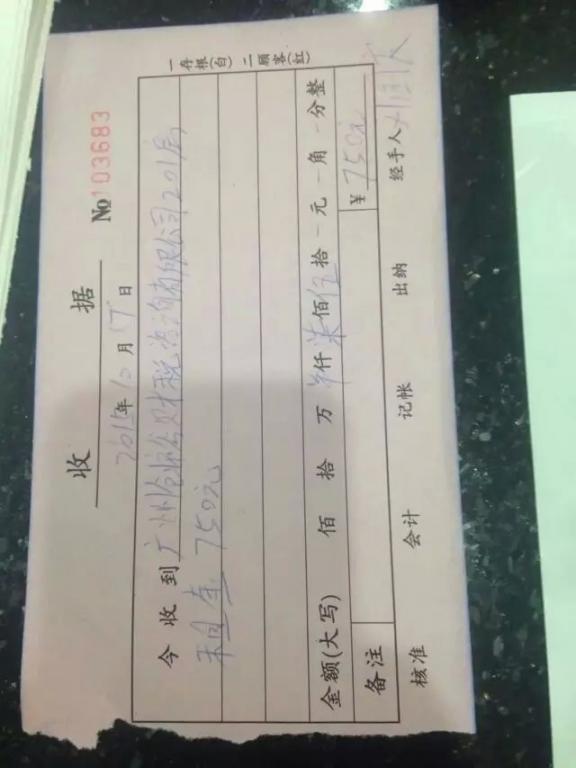 收 据
№ 103683
2015年12月17日
一存根(白) 二顾客(红)
今 收 到 广州 财税咨询有限公司201房
租金 750元
金额(大写) 佰 拾 万 仟柒佰伍拾 元 角 分整
备注 ¥ 750元
核准 会计 记帐 出纳 经手人